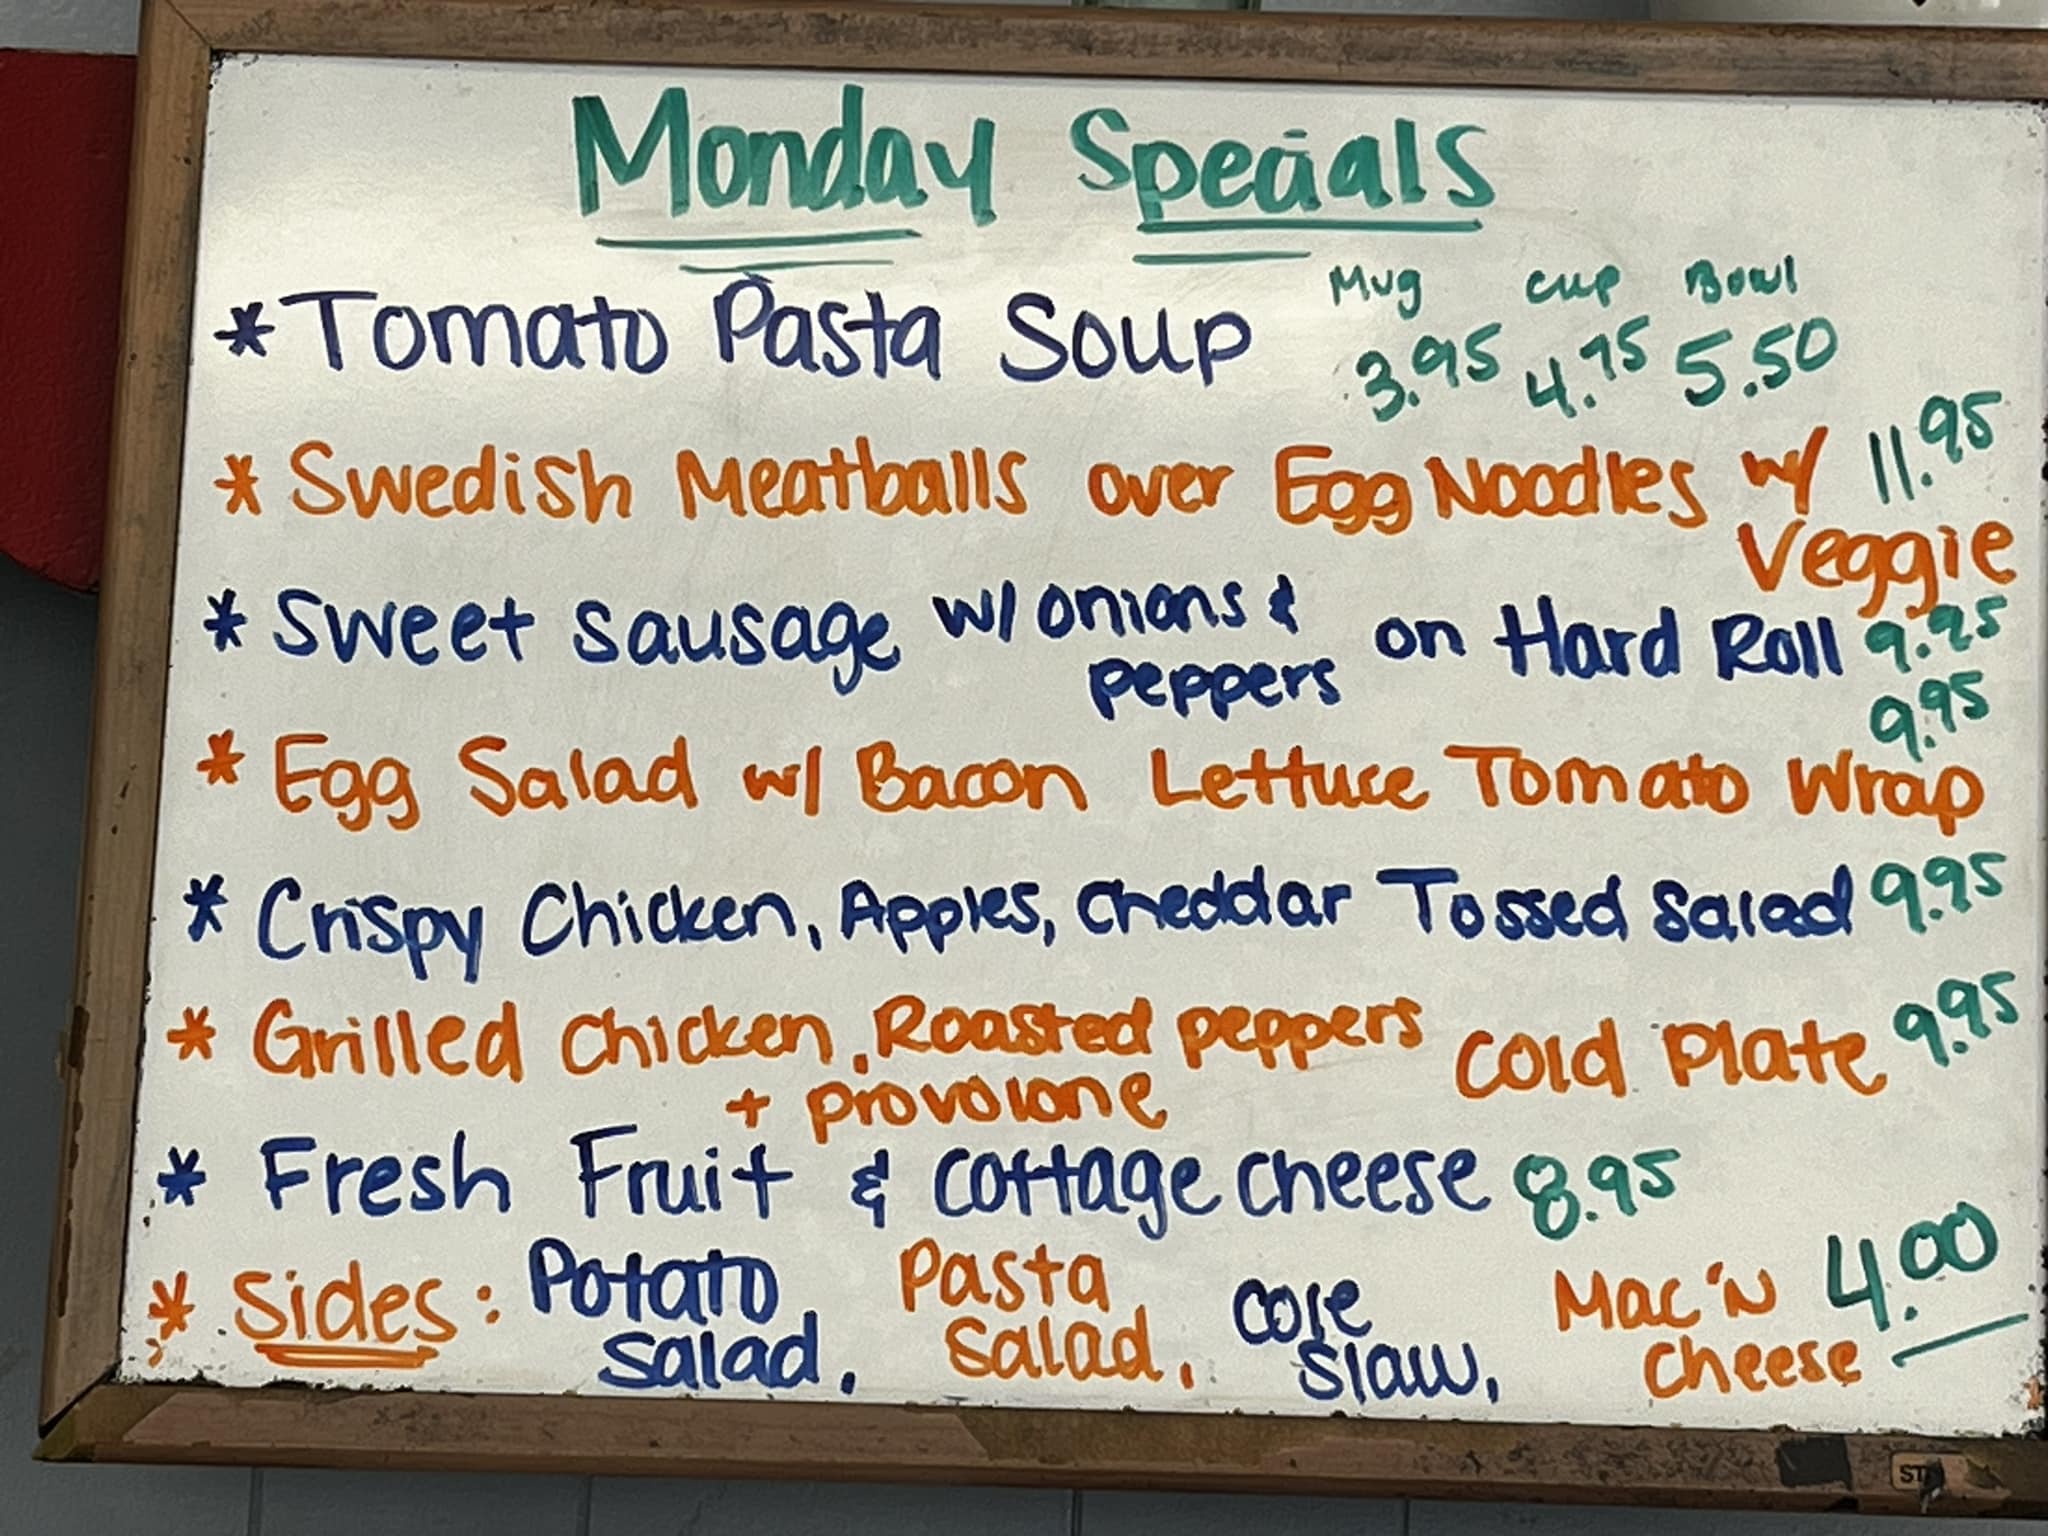 Monday Specials
Mug Cup Bowl
* Tomato Pasta Soup 3.95 4.75 5.50
* Swedish Meatballs over Egg Noodles w/ 11.95
Veggie
* Sweet Sausage w/ onions & on Hard Roll 9.95
peppers
9.95
* Egg Salad w/ Bacon Lettuce Tomato Wrap
* Crispy Chicken, Apples, Cheddar Tossed Salad 9.95
* Grilled Chicken, Roasted peppers Cold Plate 9.95
+ provolone
* Fresh Fruit & Cottage Cheese 8.95
* Sides: Potato Pasta Cole Mac 'N 4.00
Salad, Salad, Slaw, Cheese